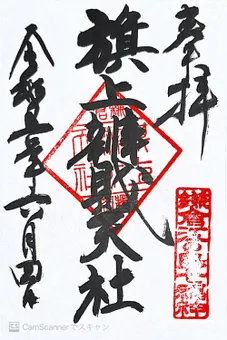 奉拝
旗上辨財天社
令和五年六月四日
CamScanner でスキャン